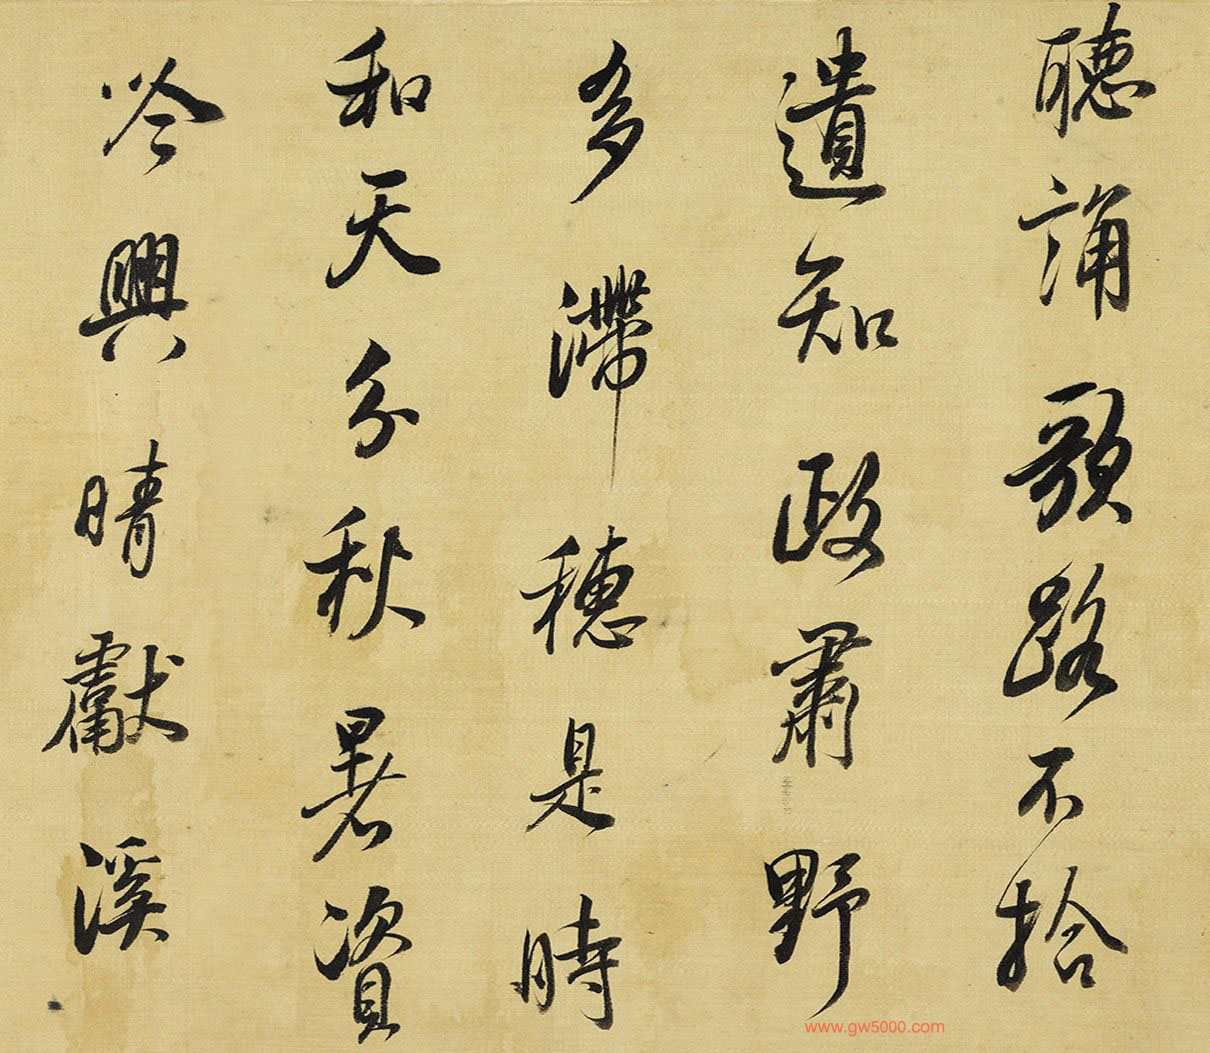 聽誦歌路不拾
遺知政肅野
多滯穗是時
和天分秋暑資
吟興晴獻溪
www.gw5000.com